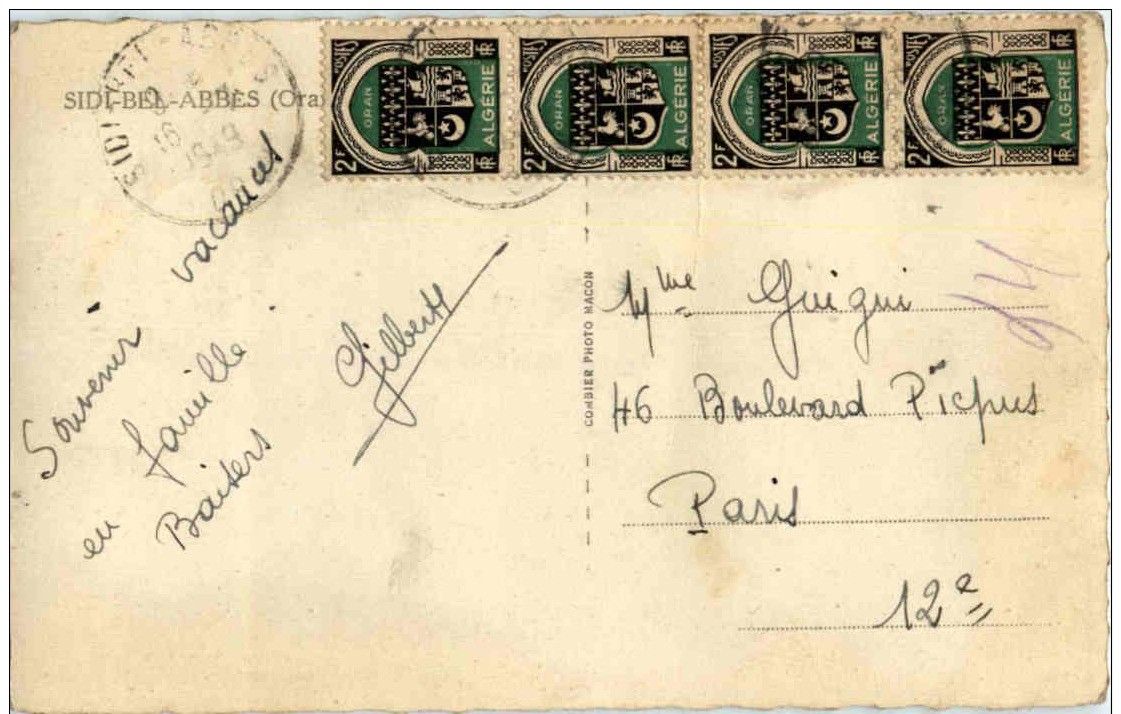 SIDI-BEL-ABBÈS (Ora
SIDI-BEL-ABBES
16
1949
POSTES ORAN 2F ALGÉRIE RF
POSTES ORAN 2F ALGÉRIE RF
POSTES ORAN 2F ALGÉRIE RF
POSTES ORAN 2F ALGÉRIE RF
Souvenir vacances
en famille
Baisers
Gilberte
COMBIER PHOTO MACON
Mme Guigui
46 Boulevard Picpus
Paris
12e